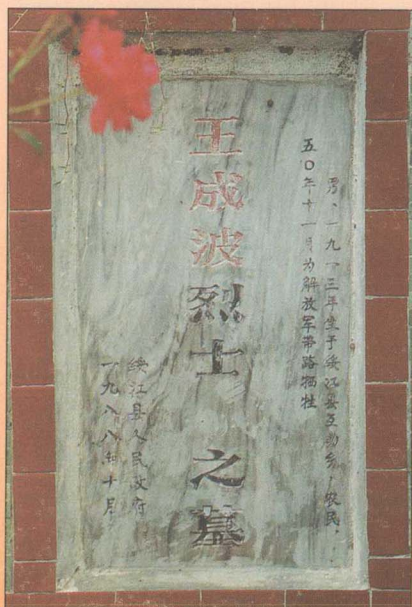 男，一九一三年生于绥江县互助乡，农民，
五〇年十一月为解放军带路牺牲
王成波烈士之墓
绥江县人民政府
一九八八年十月